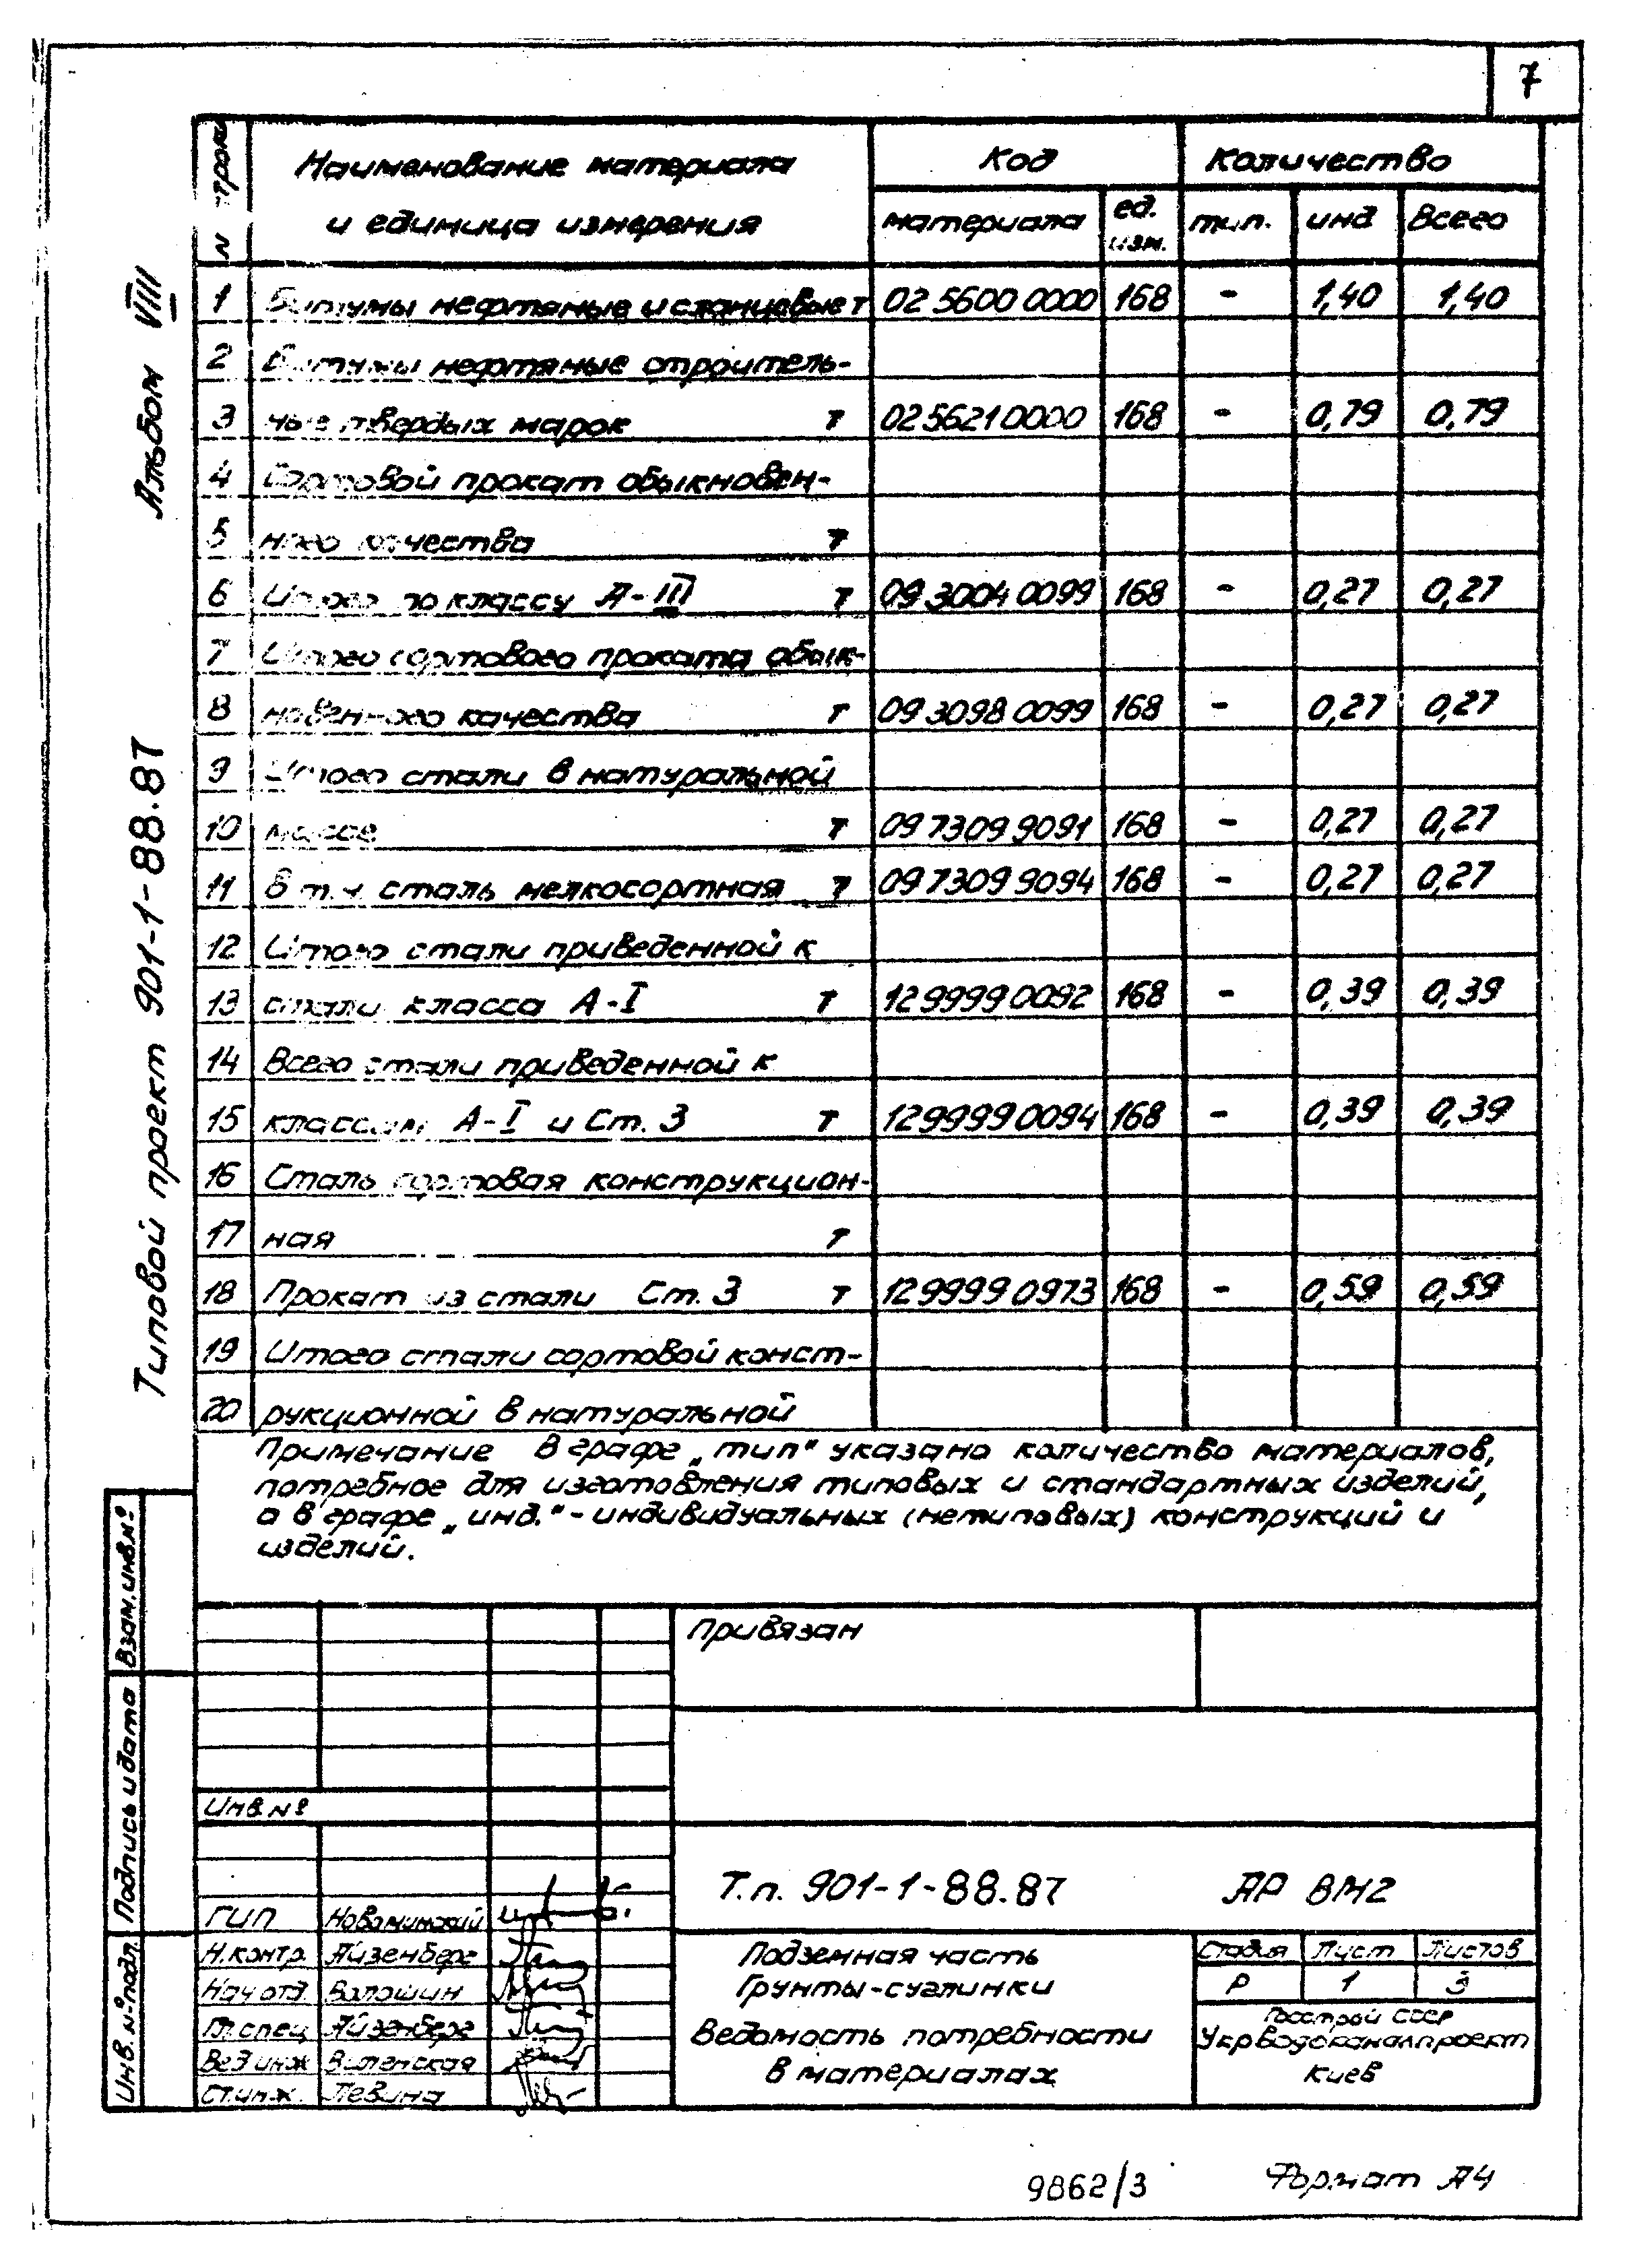 7
Альбом VIII
Типовой проект 901-1-88.87
N строки
Наименование материала
и единица измерения
Код
Количество
материала
ед.
изм.
тип.
инд
Всего
1 Битумы нефтяные и сланцевые т 02 5600 0000 168 - 1,40 1,40
2 Битумы нефтяные строитель-
3 ные твердых марок т 02 5621 0000 168 - 0,79 0,79
4 Сортовой прокат обыкновен-
5 ного качества т
6 Итого по классу А-III т 09 3004 0099 168 - 0,27 0,27
7 Итого сортового проката обык-
8 новенного качества т 09 3098 0099 168 - 0,27 0,27
9 Итого стали в натуральной
10 массе т 09 7309 9091 168 - 0,27 0,27
11 В т.ч. сталь мелкосортная т 09 7309 9094 168 - 0,27 0,27
12 Итого стали приведенной к
13 стали класса А-I т 12 9999 0092 168 - 0,39 0,39
14 Всего стали приведенной к
15 классам А-I и Ст. 3 т 12 9999 0094 168 - 0,39 0,39
16 Сталь сортовая конструкцион-
17 ная т
18 Прокат из стали Ст. 3 т 12 9999 0973 168 - 0,59 0,59
19 Итого стали сортовой конст-
20 рукционной в натуральной
Примечание В графе „тип" указано количество материалов,
потребное для изготовления типовых и стандартных изделий,
а в графе „инд." - индивидуальных (нетиповых) конструкций и
изделий.
Взам. инв. №
Подпись и дата
Инв. № подл.
Привязан
Инв №
Т.п. 901-1-88.87 АР ВМ2
ГИП Новоминский
Н.контр. Айзенберг
Нач отд. Волошин
Гл. спец Айзенберг
Вед инж Виленская
Ст. инж. Левина
Подземная часть
Грунты-суглинки
Ведомость потребности
в материалах
Стадия Лист Листов
Р 1 3
Госстрой СССР
Укрводоканалпроект
Киев
9862/3
Формат А4